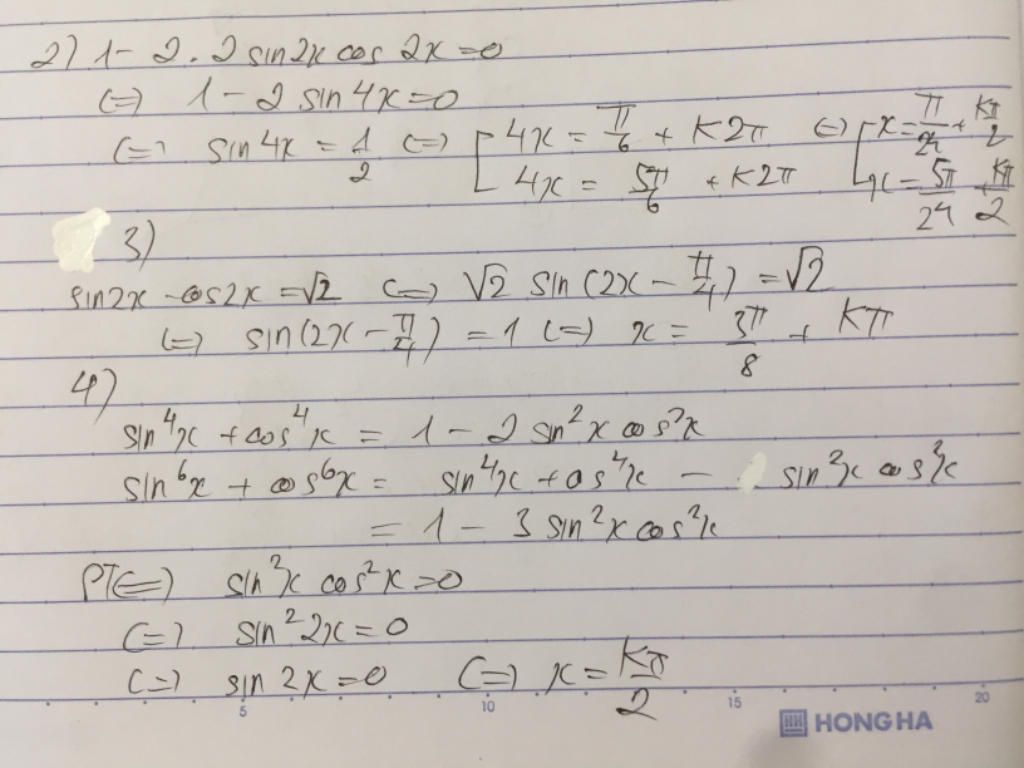 2) 1 - 2 . 2 sin2x cos 2x = 0
<=> 1 - 2 sin 4x = 0
<=> sin 4x = 1/2 <=> [ 4x = π/6 + K2π <=> [ x = π/24 + Kπ/2
4x = 5π/6 + K2π x = 5π/24 + Kπ/2
3)
sin2x - cos2x = √2 <=> √2 sin (2x - π/4) = √2
<=> sin(2x - π/4) = 1 <=> x = 3π/8 + Kπ
4)
sin⁴x + cos⁴x = 1 - 2 sin²x cos²x
sin⁶x + cos⁶x = sin⁴x + cos⁴x - sin²x cos²x
= 1 - 3 sin²x cos²x
PT <=> sin²x cos²x = 0
<=> sin²2x = 0
<=> sin 2x = 0 <=> x = Kπ/2
5 10 15 20
HONG HA